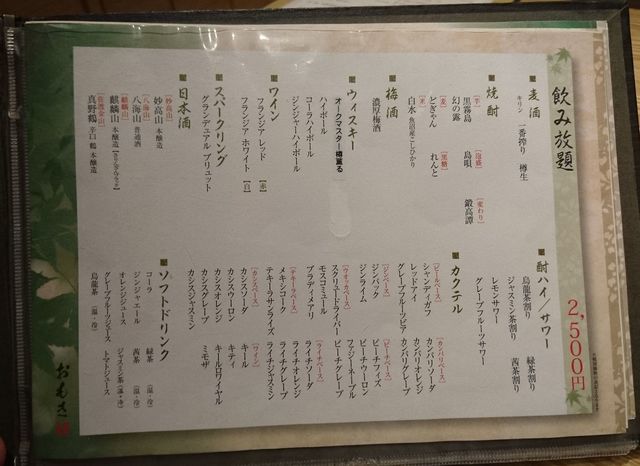 飲み放題
2,500円
■麦酒
キリン 一番搾り 樽生
■焼酎
[芋]
黒霧島
幻の露
[麦]
とぎやん
[米]
白水
魚沼産こしひかり
[泡盛]
島唄
[黒糖]
れんと
[変わり]
鍛高譚
■梅酒
濃厚梅酒
■ウィスキー
オークマスター樽薫る
ハイボール
コーラハイボール
ジンジャーハイボール
■ワイン
フランジア レッド [赤]
フランジア ホワイト [白]
■スパークリング
グランデュアル ブリュット
■日本酒
[妙高山]
妙高山 本醸造
[八海山]
八海山 普通酒
[麒麟山]
麒麟山 本醸造
[佐渡金山]
真野鶴 辛口 鶴 本醸造
■酎ハイ/サワー
烏龍茶割り 緑茶割り
ジャスミン茶割り 茜茶割り
レモンサワー
グレープフルーツサワー
■カクテル
[ビールベース]
シャンディガフ
レッドアイ
グレープフルーツビア
[ジンベース]
ジンバック
ジンライム
[ウオッカベース]
スクリュードライバー
モスコミュール
ブラディメアリ
[テキーラベース]
メキシコーク
テキーラサンライズ
[カシスベース]
カシスソーダ
カシスウーロン
カシスオレンジ
カシスグレープ
カシスジャスミン
[カンパリベース]
カンパリソーダ
カンパリオレンジ
カンパリグレープ
[ピーチベース]
ピーチフィズ
ピーチウーロン
ファジーネーブル
ピーチグレープ
[ライチベース]
ライチソーダ
ライチオレンジ
ライチグレープ
ライチジャスミン
[ワイン]
キール
キティ
キールロワイヤル
ミモザ
■ソフトドリンク
コーラ 緑茶 (温・冷)
ジンジャエール 茜茶 (温・冷)
オレンジジュース ジャスミン茶 (温・冷)
グレープフルーツジュース トマトジュース
烏龍茶 (温・冷)
おもき